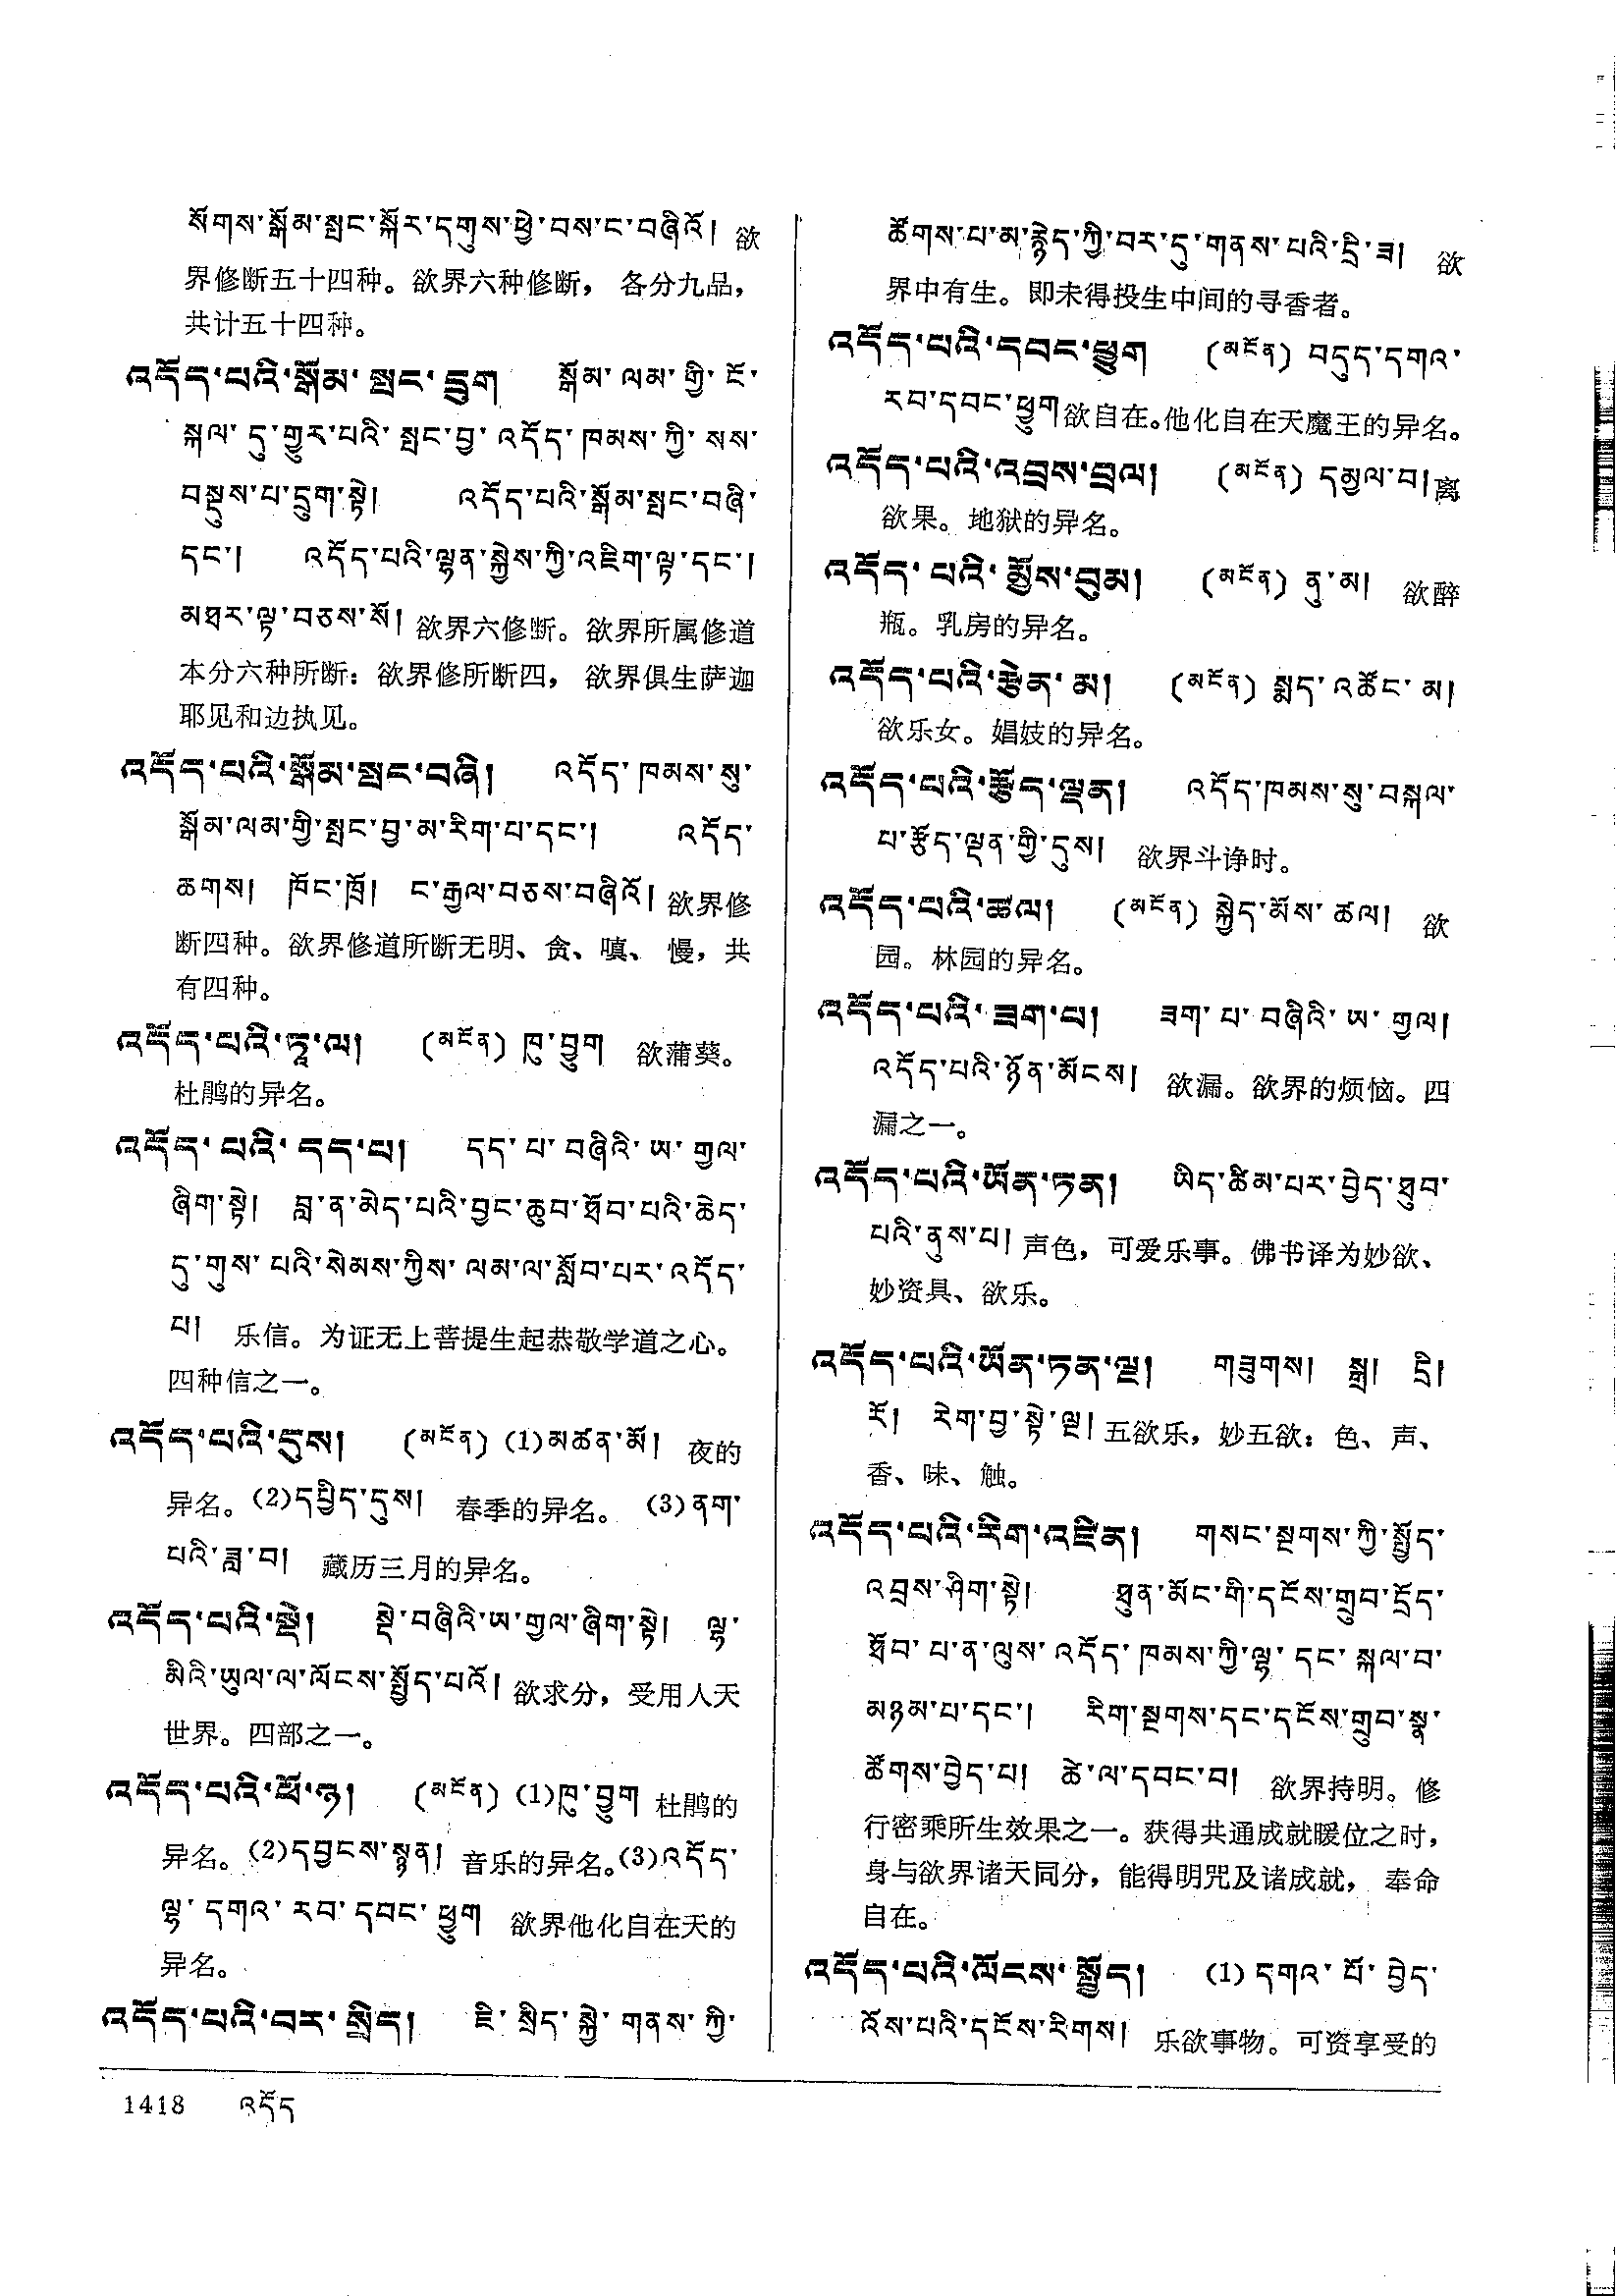 སོགས་སྒོམ་སྤང་སྐོར་དགུས་ཕྱེ་བས་ང་བཞིའོ། 欲
界修断五十四种。欲界六种修断，各分九品，
共计五十四种。
འདོད་པའི་སྒོམ་སྤང་དྲུག སྒོམ་ལམ་གྱི་ངོ་
སྐལ་དུ་གྱུར་པའི་སྤང་བྱ་འདོད་ཁམས་ཀྱི་སས་
བསྡུས་པ་དྲུག་སྟེ། འདོད་པའི་སྒོམ་སྤང་བཞི་
དང་། འདོད་པའི་ལྷན་སྐྱེས་ཀྱི་འཇིག་ལྟ་དང་།
མཐར་ལྟ་བཅས་སོ། 欲界六修断。欲界所属修道
本分六种所断：欲界修所断四，欲界俱生萨迦
耶见和边执见。
འདོད་པའི་སྒོམ་སྤང་བཞི། འདོད་ཁམས་སུ་
སྒོམ་ལམ་གྱི་སྤང་བྱ་མ་རིག་པ་དང་། འདོད་
ཆགས། ཁོང་ཁྲོ། ང་རྒྱལ་བཅས་བཞིའོ། 欲界修
断四种。欲界修道所断无明、贪、嗔、慢，共
有四种。
འདོད་པའི་ཏཱ་ལ། (མངོན) ཁུ་བྱུག 欲蒲葵。
杜鹃的异名。
འདོད་པའི་དད་པ། དད་པ་བཞིའི་ཨ་གྱལ་
ཞིག་སྟེ། བླ་ན་མེད་པའི་བྱང་ཆུབ་ཐོབ་པའི་ཆེད་
དུ་གུས་པའི་སེམས་ཀྱིས་ལམ་ལ་སློབ་པར་འདོད་
པ། 乐信。为证无上菩提生起恭敬学道之心。
四种信之一。
འདོད་པའི་དུས། (མངོན) (1)མཚན་མོ། 夜的
异名。(2)དཔྱིད་དུས། 春季的异名。(3)ནག་
པའི་ཟླ་བ། 藏历三月的异名。
འདོད་པའི་སྡེ། སྡེ་བཞིའི་ཨ་གྱལ་ཞིག་སྟེ། ལྷ་
མིའི་ཡུལ་ལ་ལོངས་སྤྱོད་པའོ། 欲求分，受用人天
世界。四部之一。
འདོད་པའི་ཕོ་ཉ། (མངོན) (1)ཁུ་བྱུག 杜鹃的
异名。(2)དབྱངས་སྙན། 音乐的异名。(3)འདོད་
ལྷ་དགའ་རབ་དབང་ཕྱུག 欲界他化自在天的
异名。
འདོད་པའི་བར་སྲིད། ཇི་སྲིད་སྐྱེ་གནས་ཀྱི་
ཚོགས་པ་མ་རྙེད་ཀྱི་བར་དུ་གནས་པའི་དྲི་ཟ། 欲
界中有生。即未得投生中间的寻香者。
འདོད་པའི་དབང་ཕྱུག (མངོན) བདུད་དགའ་
རབ་དབང་ཕྱུག 欲自在。他化自在天魔王的异名。
འདོད་པའི་འབྲས་བྲལ། (མངོན) དམྱལ་བ། 离
欲果。地狱的异名。
འདོད་པའི་མྱོས་བུམ། (མངོན) ནུ་མ། 欲醉
瓶。乳房的异名。
འདོད་པའི་རྩེན་མ། (མངོན) སྨད་འཚོང་མ།
欲乐女。娼妓的异名。
འདོད་པའི་རྩོད་ལྡན། འདོད་ཁམས་སུ་བསྐལ་
པ་རྩོད་ལྡན་གྱི་དུས། 欲界斗诤时。
འདོད་པའི་ཚལ། (མངོན) སྐྱེད་མོས་ཚལ། 欲
园。林园的异名。
འདོད་པའི་ཟག་པ། ཟག་པ་བཞིའི་ཨ་གྱལ།
འདོད་པའི་ཉོན་མོངས། 欲漏。欲界的烦恼。四
漏之一。
འདོད་པའི་ཡོན་ཏན། ཡིད་ཚིམ་པར་བྱེད་ཐུབ་
པའི་ནུས་པ། 声色，可爱乐事。佛书译为妙欲、
妙资具、欲乐。
འདོད་པའི་ཡོན་ཏན་ལྔ། གཟུགས། སྒྲ། དྲི།
རོ། རེག་བྱ་སྟེ་ལྔ། 五欲乐，妙五欲：色、声、
香、味、触。
འདོད་པའི་རིག་འཛིན། གསང་སྔགས་ཀྱི་སྤྱོད་
འབྲས་ཤིག་སྟེ། ཐུན་མོང་གི་དངོས་གྲུབ་དྲོད་
ཐོབ་པ་ན་ལུས་འདོད་ཁམས་ཀྱི་ལྷ་དང་སྐལ་བ་
མཉམ་པ་དང་། རིག་སྔགས་དང་དངོས་གྲུབ་སྣ་
ཚོགས་བྱེད་པ། ཚེ་ལ་དབང་བ། 欲界持明。修
行密乘所生效果之一。获得共通成就暖位之时，
身与欲界诸天同分，能得明咒及诸成就，奉命
自在。
འདོད་པའི་ལོངས་སྤྱོད། (1) དགའ་པོ་བྱེད་
འོས་པའི་དངོས་རིགས། 乐欲事物。可资享受的
1418 འདོད